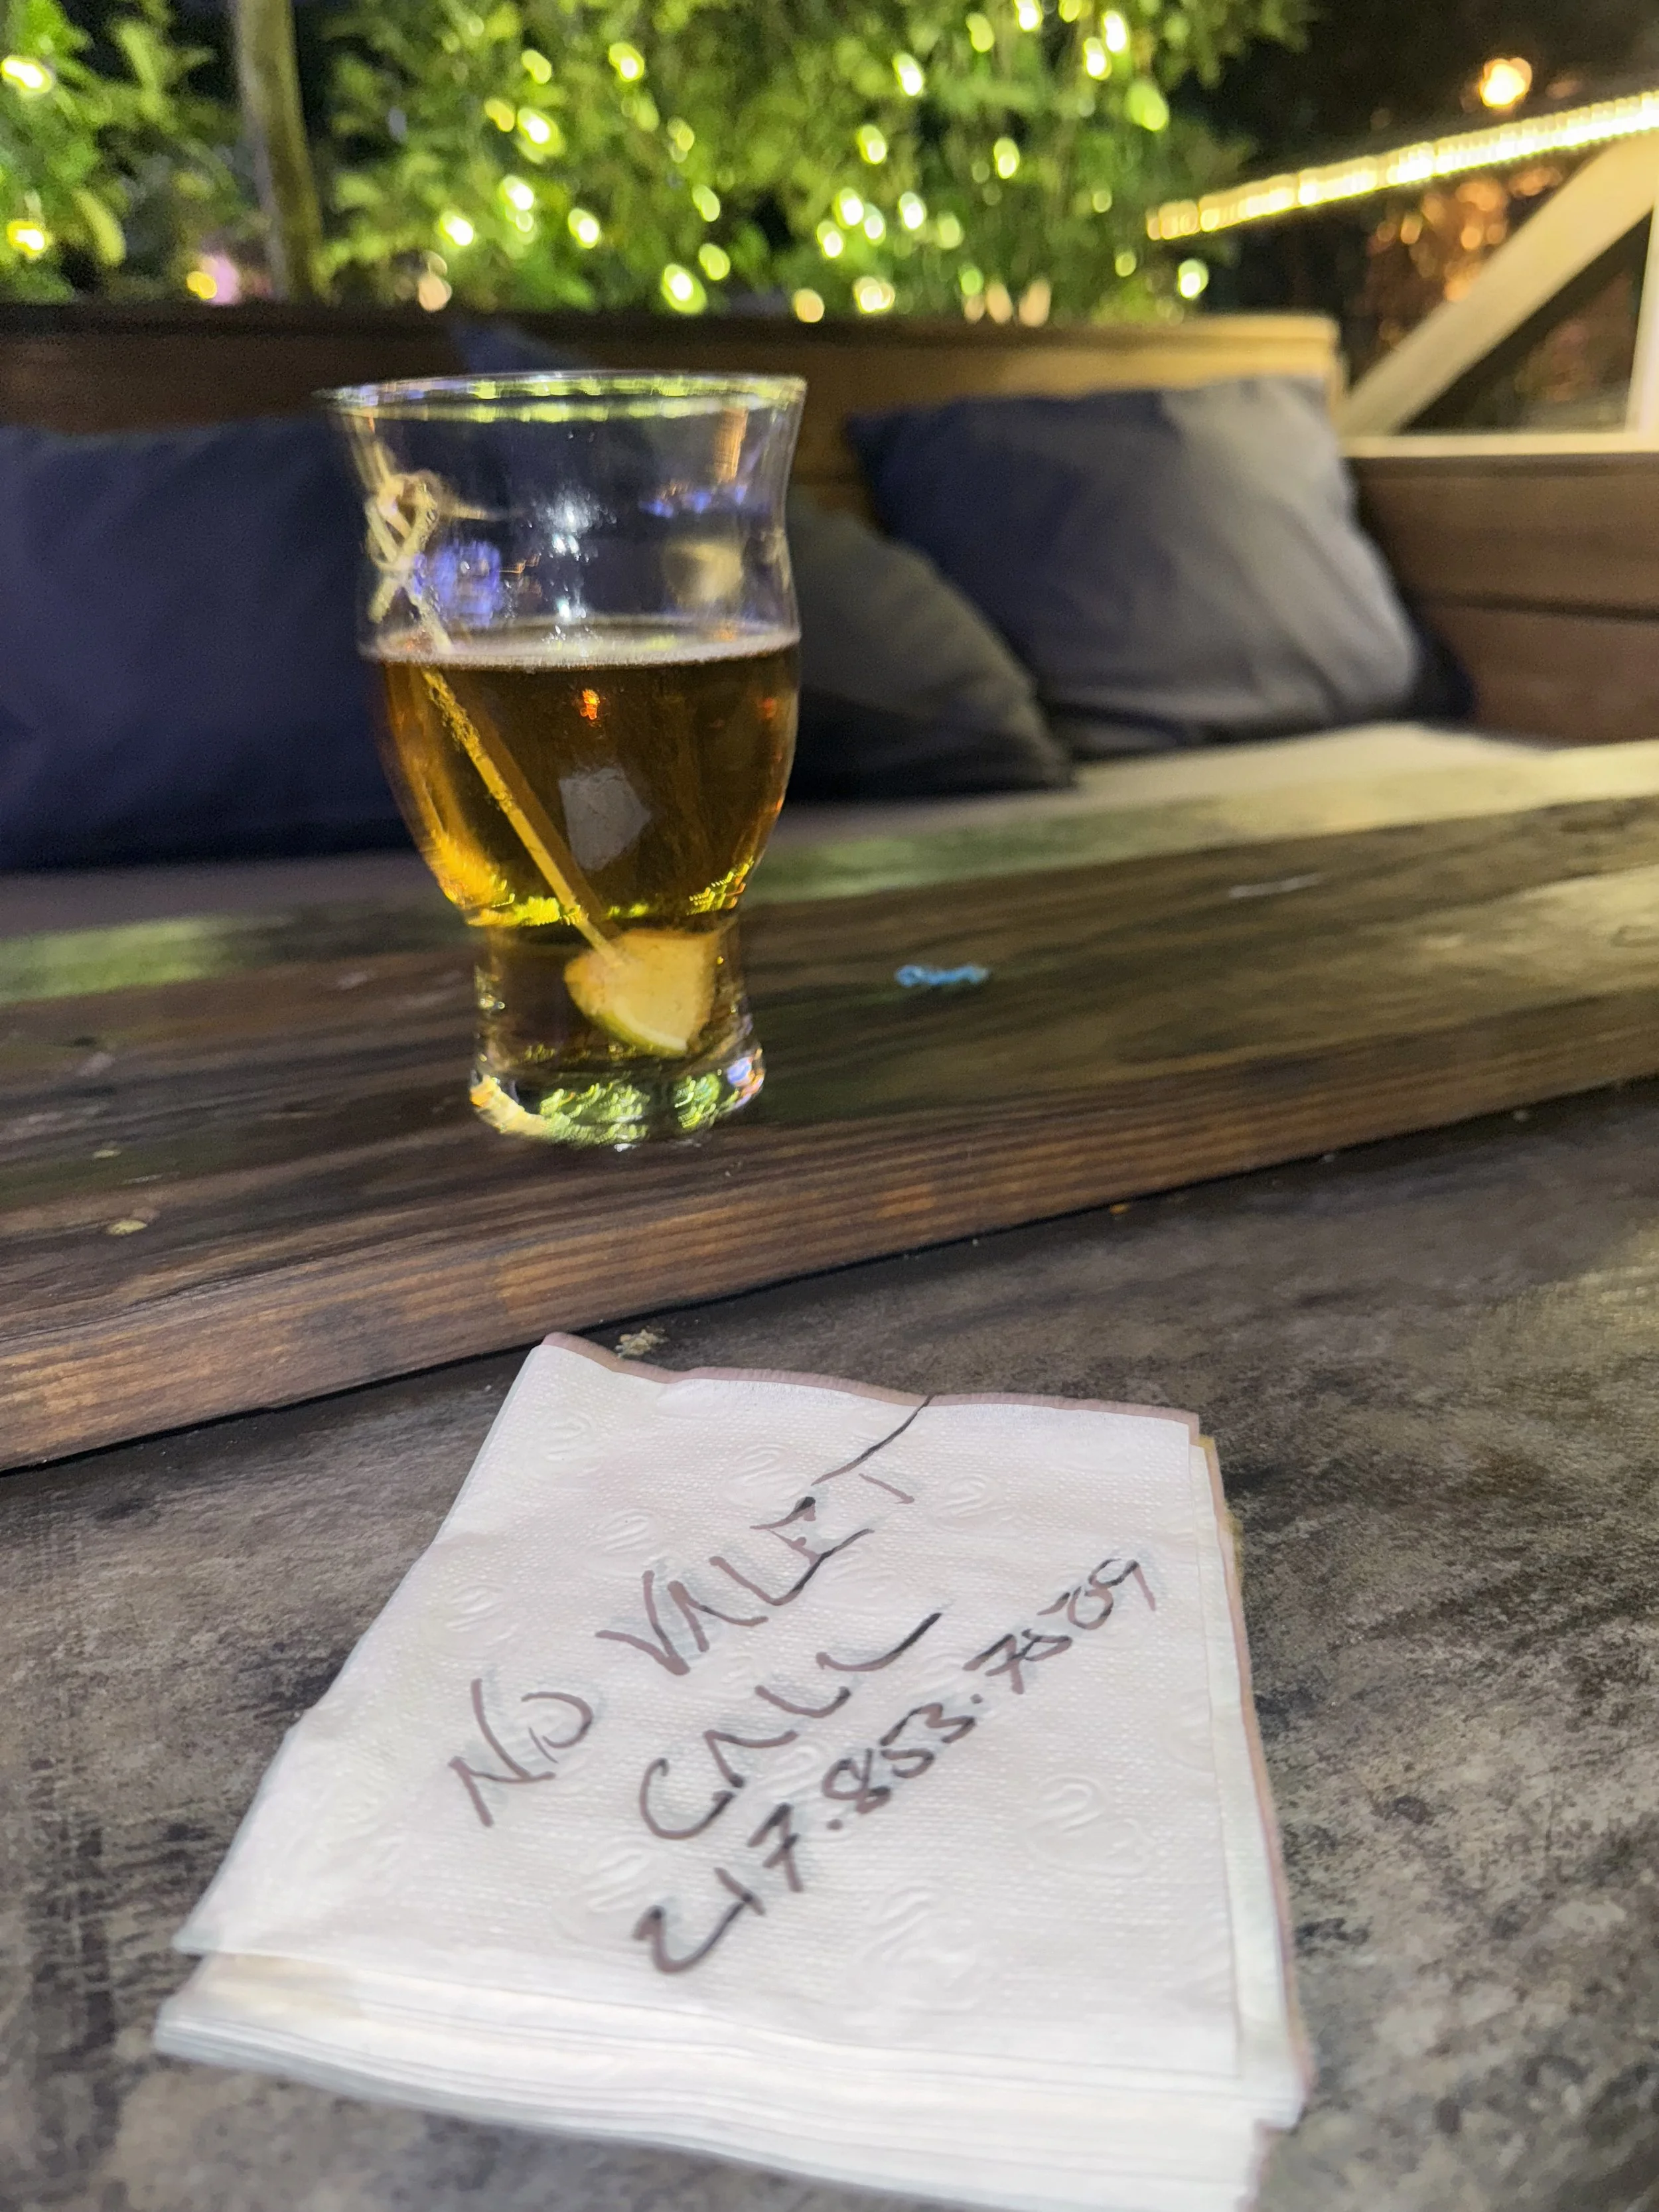 NO VALET
CALL
217.853.7509